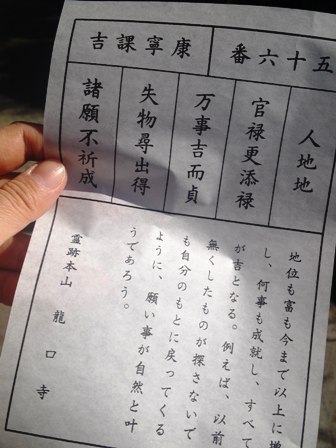 五十六番
康寧課吉
人地地
官禄更添禄
万事吉而貞
失物尋出得
諸願不祈成
地位も富も今まで以上に増
し、何事も成就し、すべて
が吉となる。例えば、以前
無くしたものが探さないで
も自分のもとに戻ってくる
ように、願い事が自然と叶
うであろう。
霊跡本山 龍口寺